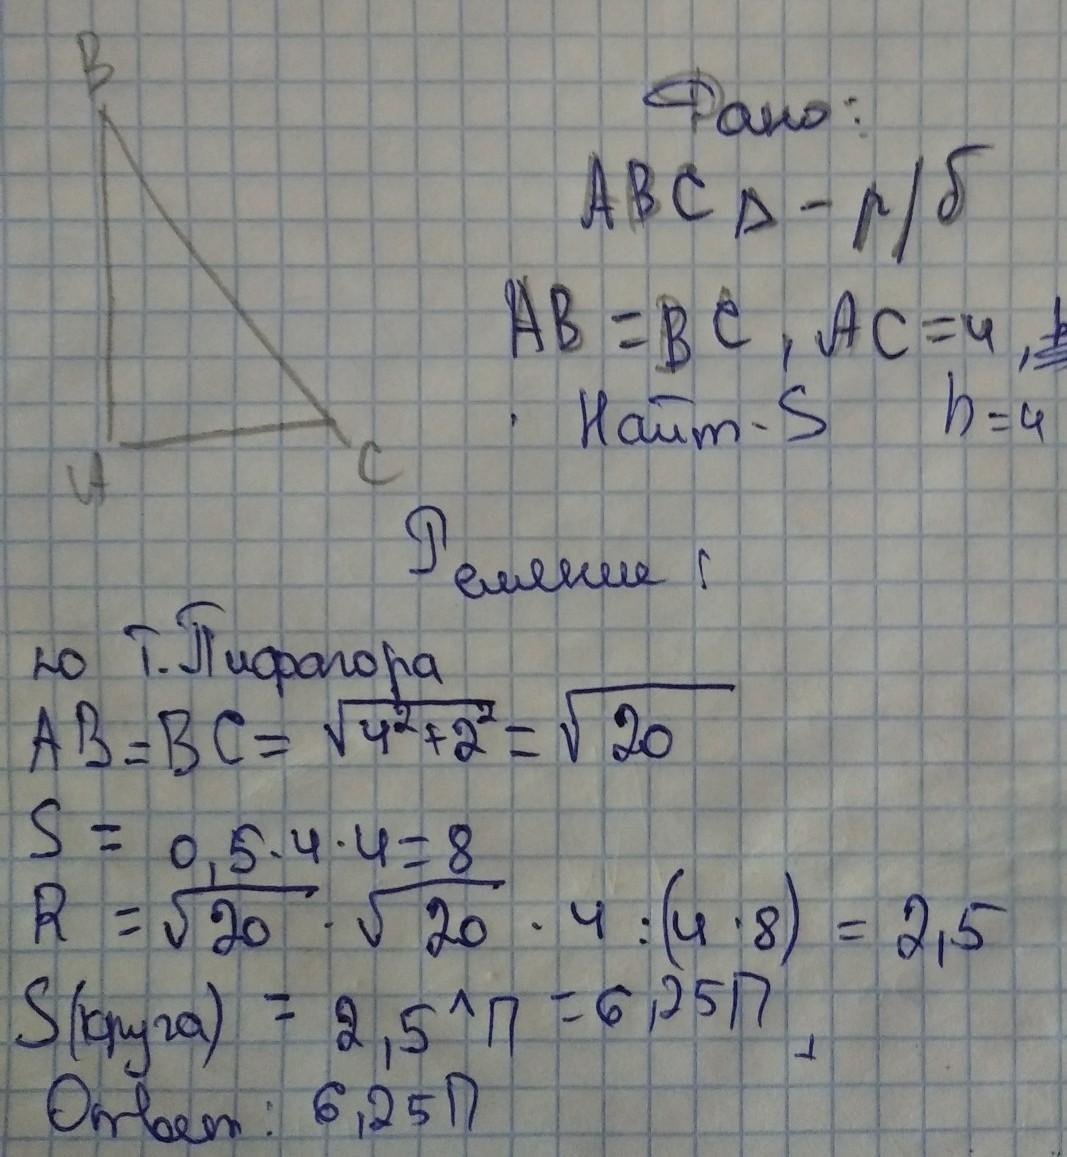 B
A
C
Дано:
ABC Δ - р/б
AB = BC, AC = 4,
Найт - S h = 4
Решение:
по Т. Пифагора
AB = BC = √4²+2² = √20
S = 0,5·4·4 = 8
R = √20 · √20 · 4 : (4·8) = 2,5
S(круга) = 2,5^П = 6,25П
Ответ: 6,25П